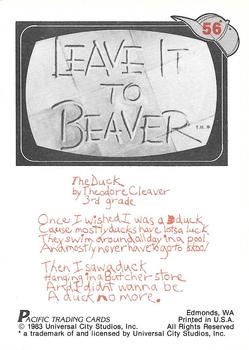 56
LEAVE IT
TO
BEAVER
T.M.*
The Duck
by Theodore Cleaver
3rd grade
Once I wished I was a duck
Cause mostly ducks have lotsa luck
They swim around all day in a pool
And mostly never have to go to school
Then I saw a duck
Hanging in a Butcher store
And I didnt wanna be
A duck no more.
PACIFIC TRADING CARDS
Edmonds, WA
Printed in U.S.A.
© 1983 Universal City Studios, Inc. All Rights Reserved
* a trademark of and licensed by Universal City Studios, Inc.